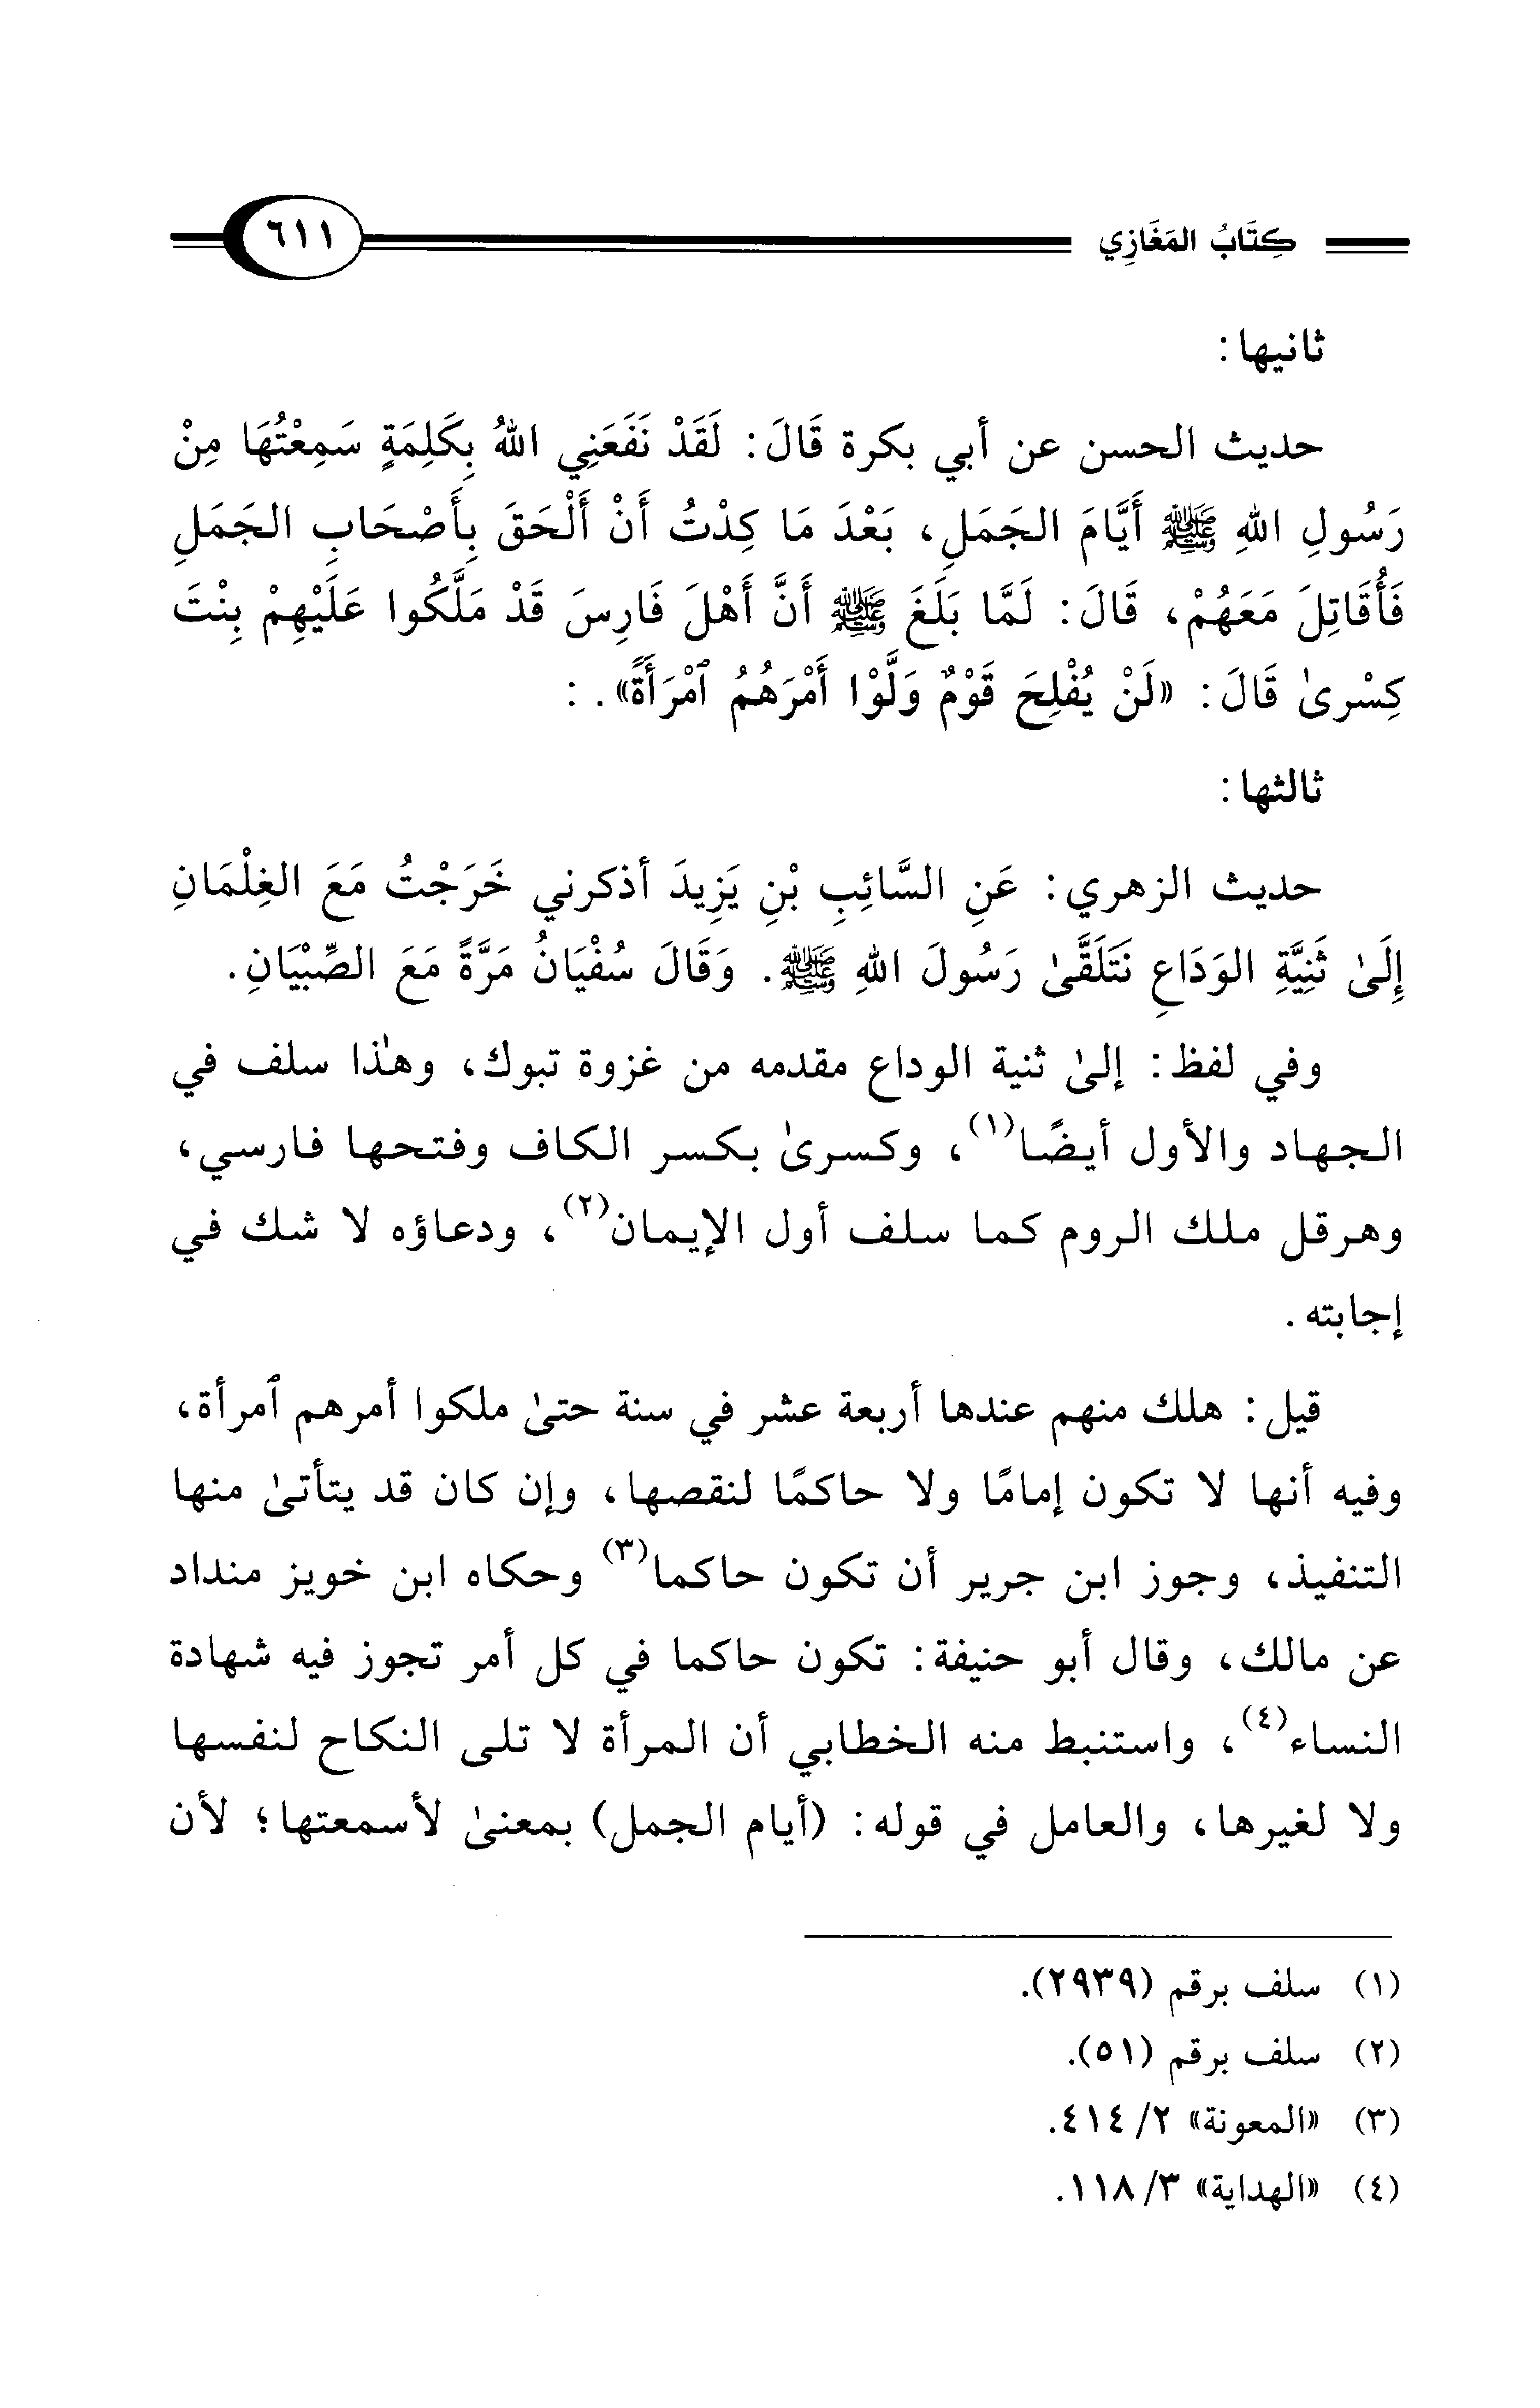 كِتَابُ المَغَازِي ٦١١
ثانيها:
حديث الحسن عن أبي بكرة قَالَ: لَقَدْ نَفَعَنِي اللهُ بِكَلِمَةٍ سَمِعْتُهَا مِنْ
رَسُولِ اللهِ ﷺ أَيَّامَ الجَمَلِ، بَعْدَ مَا كِدْتُ أَنْ أَلْحَقَ بِأَصْحَابِ الجَمَلِ
فَأُقَاتِلَ مَعَهُمْ، قَالَ: لَمَّا بَلَغَ ﷺ أَنَّ أَهْلَ فَارِسَ قَدْ مَلَّكُوا عَلَيْهِمْ بِنْتَ
كِسْرىٰ قَالَ: «لَنْ يُفْلِحَ قَوْمٌ وَلَّوْا أَمْرَهُمُ ٱمْرَأَةً». :
ثالثها:
حديث الزهري: عَنِ السَّائِبِ بْنِ يَزِيدَ أذكرني خَرَجْتُ مَعَ الغِلْمَانِ
إِلَىٰ ثَنِيَّةِ الوَدَاعِ نَتَلَقَّىٰ رَسُولَ اللهِ ﷺ. وَقَالَ سُفْيَانُ مَرَّةً مَعَ الصِّبْيَانِ.
وفي لفظ: إلىٰ ثنية الوداع مقدمه من غزوة تبوك، وهٰذا سلف في
الجهاد والأول أيضًا(١)، وكسرىٰ بكسر الكاف وفتحها فارسي،
وهرقل ملك الروم كما سلف أول الإيمان(٢)، ودعاؤه لا شك في
إجابته.
قيل: هلك منهم عندها أربعة عشر في سنة حتىٰ ملكوا أمرهم ٱمرأة،
وفيه أنها لا تكون إمامًا ولا حاكمًا لنقصها، وإن كان قد يتأتىٰ منها
التنفيذ، وجوز ابن جرير أن تكون حاكما(٣) وحكاه ابن خويز منداد
عن مالك، وقال أبو حنيفة: تكون حاكما في كل أمر تجوز فيه شهادة
النساء(٤)، واستنبط منه الخطابي أن المرأة لا تلى النكاح لنفسها
ولا لغيرها، والعامل في قوله: (أيام الجمل) بمعنىٰ لأسمعتها؛ لأن
(١) سلف برقم (٢٩٣٩).
(٢) سلف برقم (٥١).
(٣) «المعونة» ٢/ ٤١٤.
(٤) «الهداية» ٣/ ١١٨.